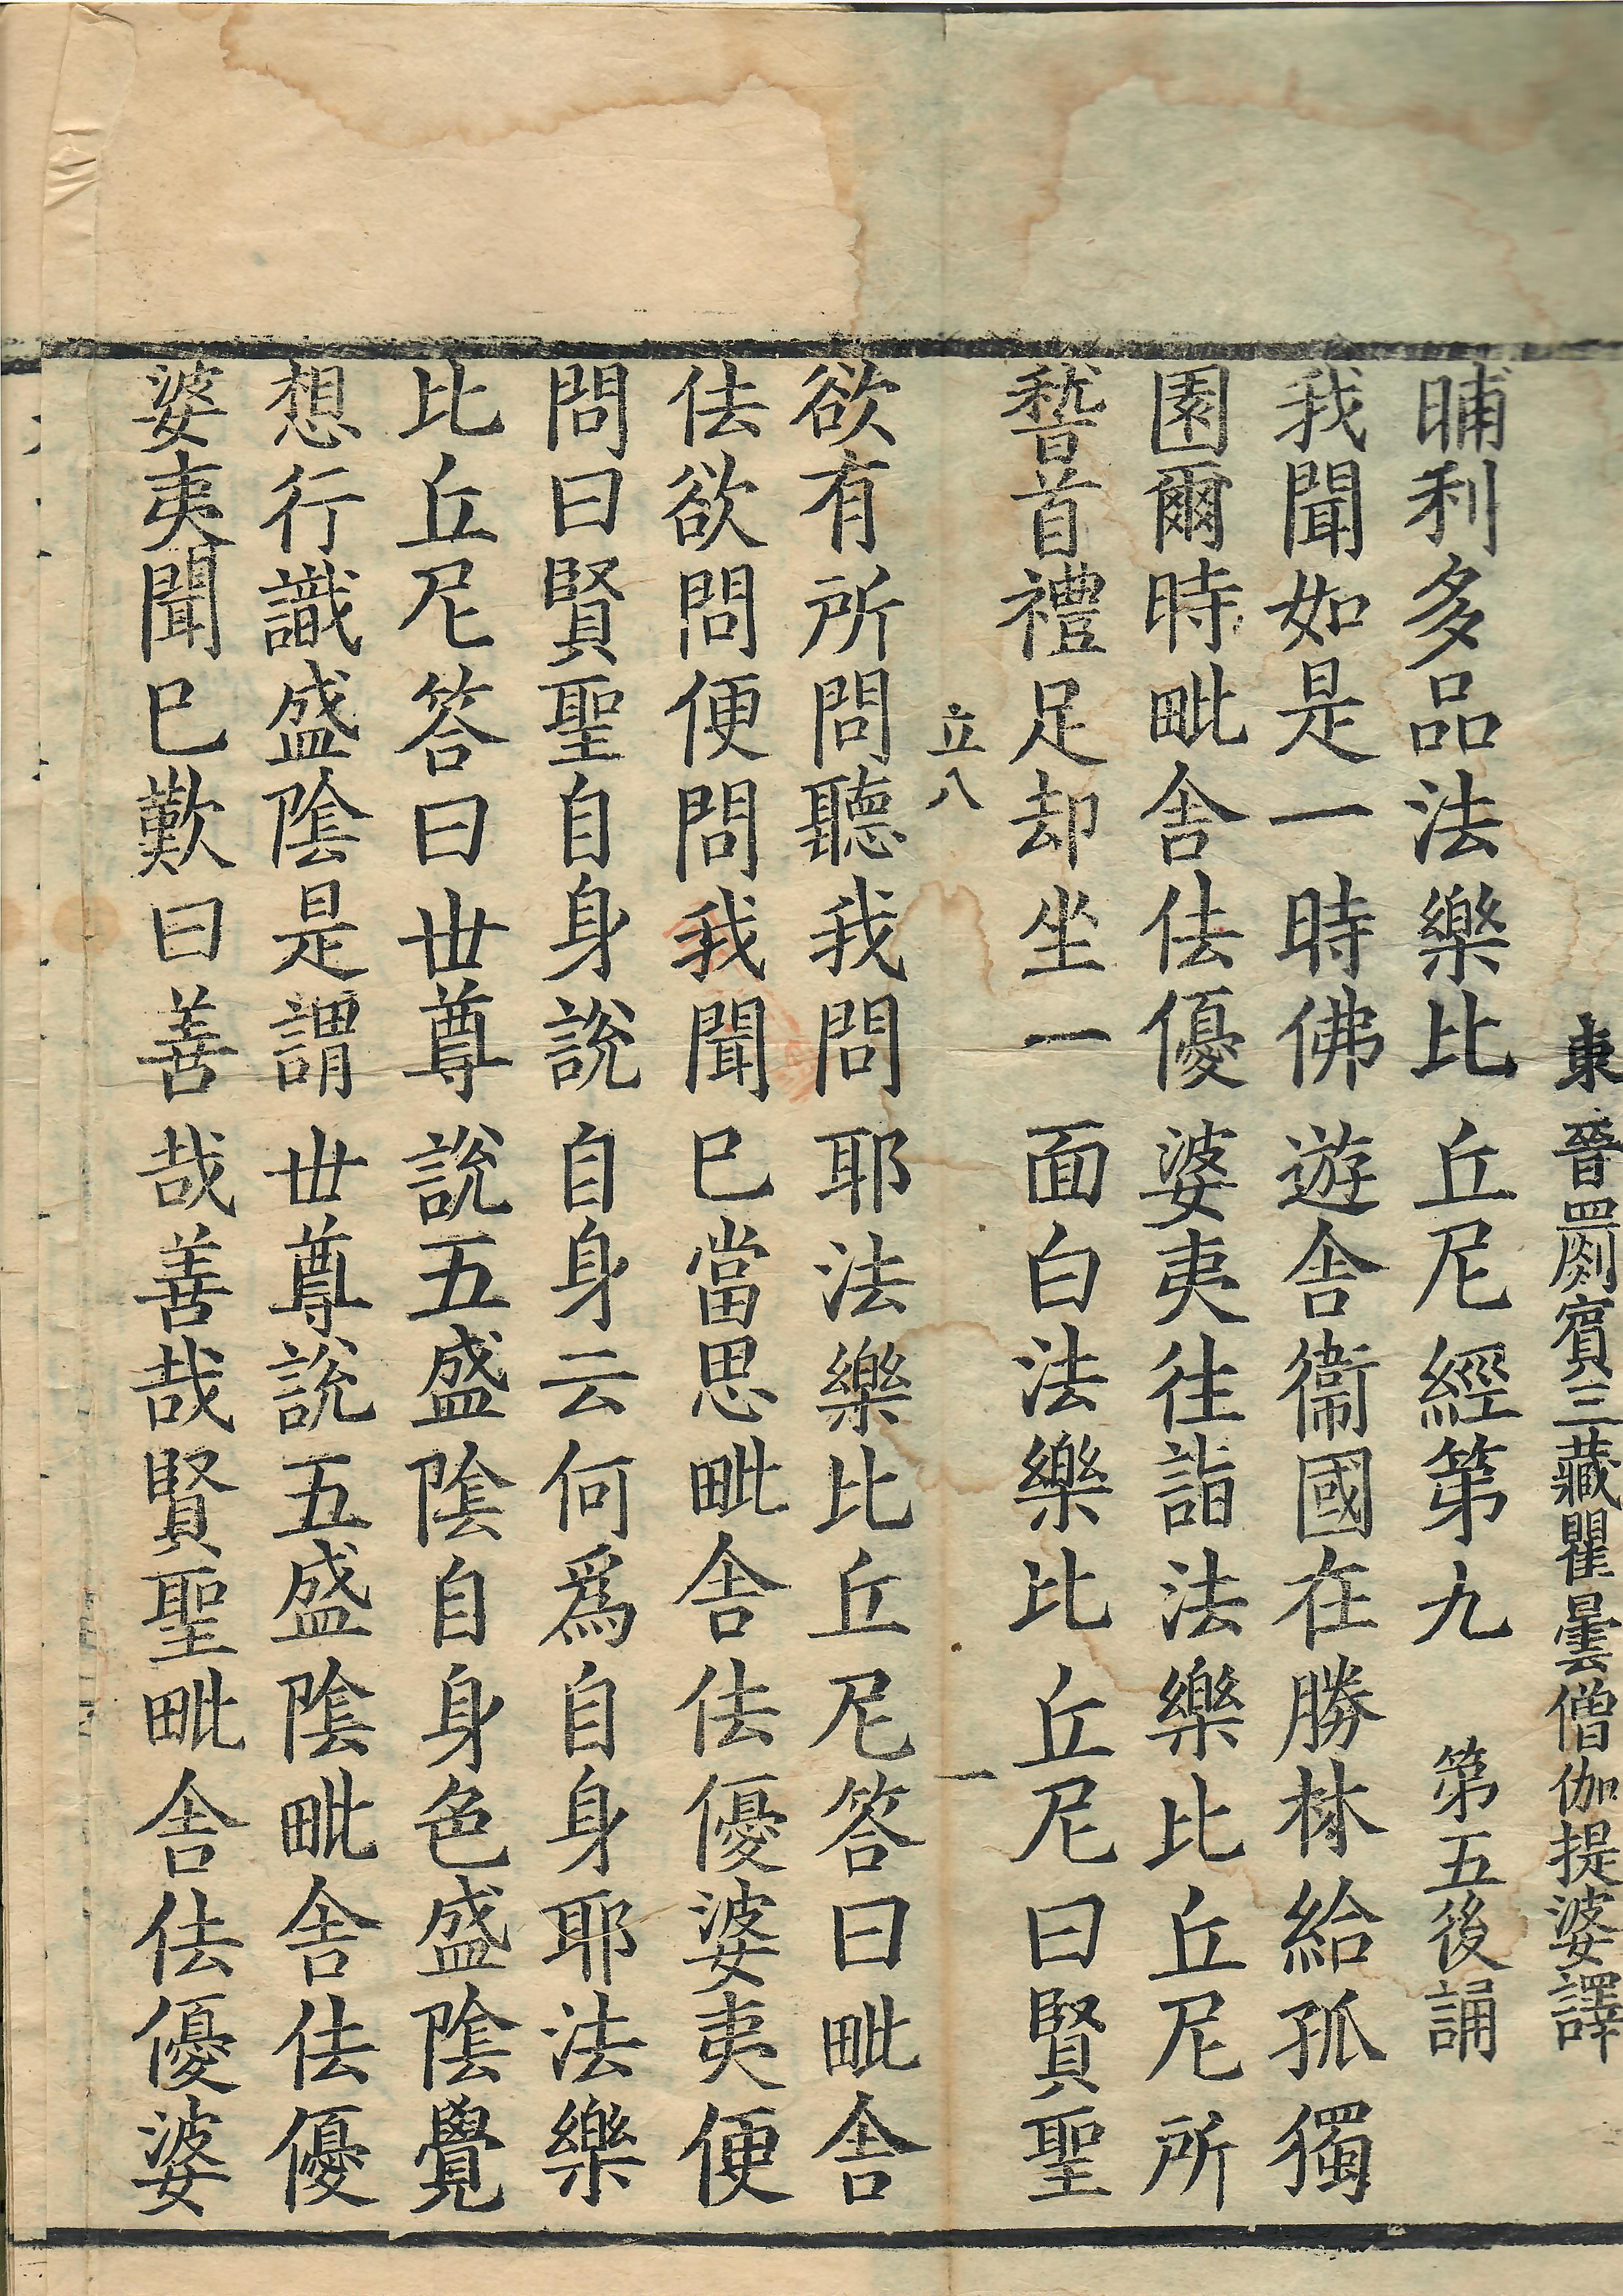 東晉罽賓三藏瞿曇僧伽提婆譯
晡利多品法樂比丘尼經第九 第五後誦
我聞如是一時佛遊舍衞國在勝林給孤獨
園爾時毗舍佉優婆夷往詣法樂比丘尼所
稽首禮足却坐一面白法樂比丘尼曰賢聖
立八 一
欲有所問聽我問耶法樂比丘尼答曰毗舍
佉欲問便問我聞已當思毗舍佉優婆夷便
問曰賢聖自身說自身云何爲自身耶法樂
比丘尼答曰世尊說五盛陰自身色盛陰覺
想行識盛陰是謂世尊說五盛陰毗舍佉優
婆夷聞已歎曰善哉善哉賢聖毗舍佉優婆